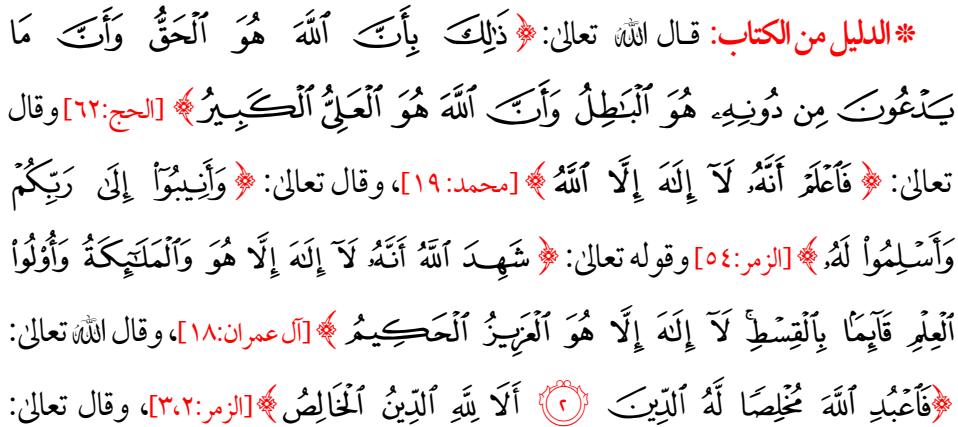 * الدليل من الكتاب: قال الله تعالىٰ: ﴿ ذَٰلِكَ بِأَنَّ ٱللَّهَ هُوَ ٱلْحَقُّ وَأَنَّ مَا
يَدْعُونَ مِن دُونِهِۦ هُوَ ٱلْبَٰطِلُ وَأَنَّ ٱللَّهَ هُوَ ٱلْعَلِىُّ ٱلْكَبِيرُ ﴾ [الحج:٦٢] وقال
تعالىٰ: ﴿ فَٱعْلَمْ أَنَّهُۥ لَآ إِلَٰهَ إِلَّا ٱللَّهُ ﴾ [محمد:١٩]، وقال تعالىٰ: ﴿ وَأَنِيبُوٓا۟ إِلَىٰ رَبِّكُمْ
وَأَسْلِمُوا۟ لَهُۥ ﴾ [الزمر:٥٤] وقوله تعالىٰ: ﴿ شَهِدَ ٱللَّهُ أَنَّهُۥ لَآ إِلَٰهَ إِلَّا هُوَ وَٱلْمَلَٰٓئِكَةُ وَأُو۟لُوا۟
ٱلْعِلْمِ قَآئِمًۢا بِٱلْقِسْطِ ۚ لَآ إِلَٰهَ إِلَّا هُوَ ٱلْعَزِيزُ ٱلْحَكِيمُ ﴾ [آل عمران:١٨]، وقال الله تعالىٰ:
﴿فَٱعْبُدِ ٱللَّهَ مُخْلِصًا لَّهُ ٱلدِّينَ ٢ أَلَا لِلَّهِ ٱلدِّينُ ٱلْخَالِصُ ﴾ [الزمر:٣،٢]، وقال تعالىٰ: